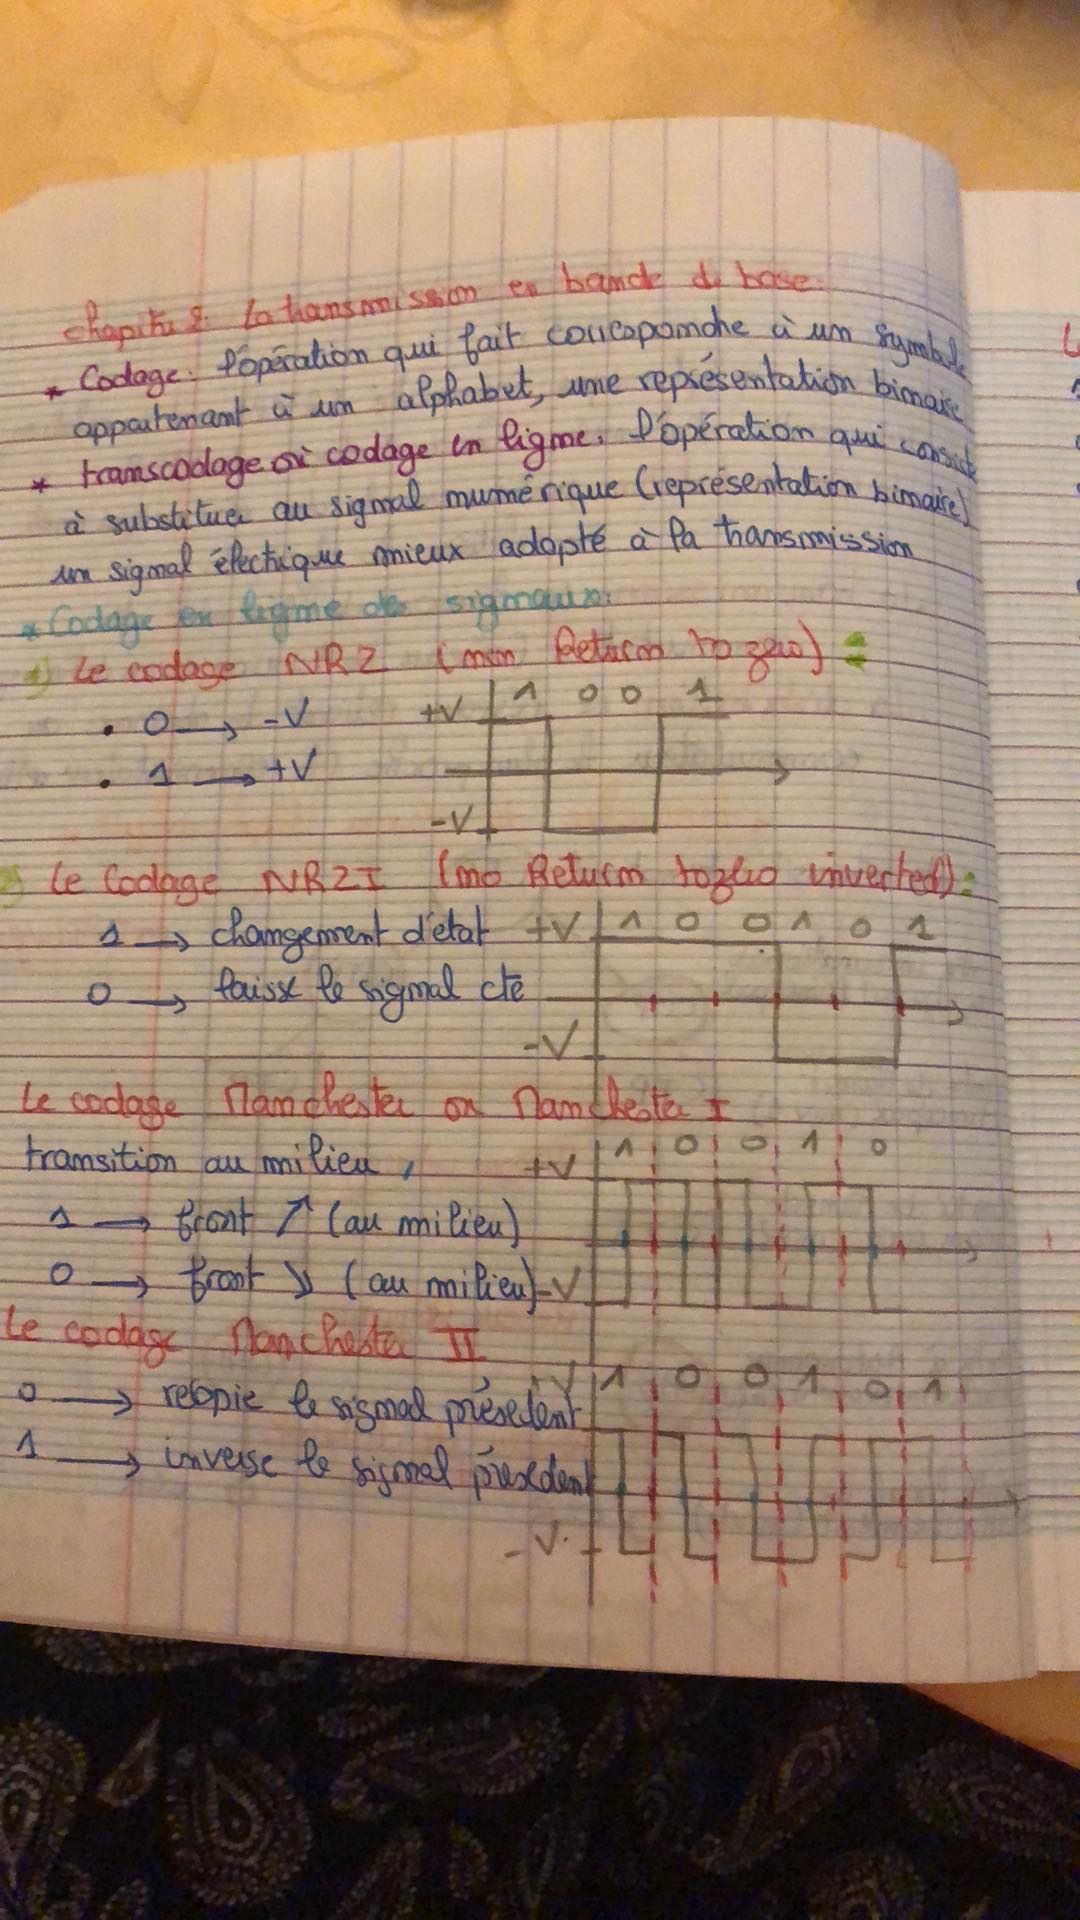 Chapitre 2: La transmission en bande de base.
* Codage: l'opération qui fait correspondre à un symbole
appartenant à un alphabet, une représentation binaire
* transcodage ou codage en ligne. l'opération qui consiste
à substituer au signal numérique (représentation binaire)
un signal électrique mieux adapté à la transmission
* Codage en ligne de signaux:
1) Le codage NRZ (non Return to zero) :
• 0 → -V
• 1 → +V
+V 1 0 0 1
-V
2) Le Codage NRZI (no Return to zero inverted):
1 → changement d'état
0 → laisse le signal cte
+V 1 0 0 1 0 1
-V
Le codage Manchester ou Manchester I
transition au milieu,
1 → front ↗ (au milieu)
0 → front ↘ (au milieu)
+V 1 0 0 1 0
-V
Le codage Manchester II
0 → recopie le signal présedent
1 → inverse le signal présedent
+V 1 0 0 1 0 1
-V.